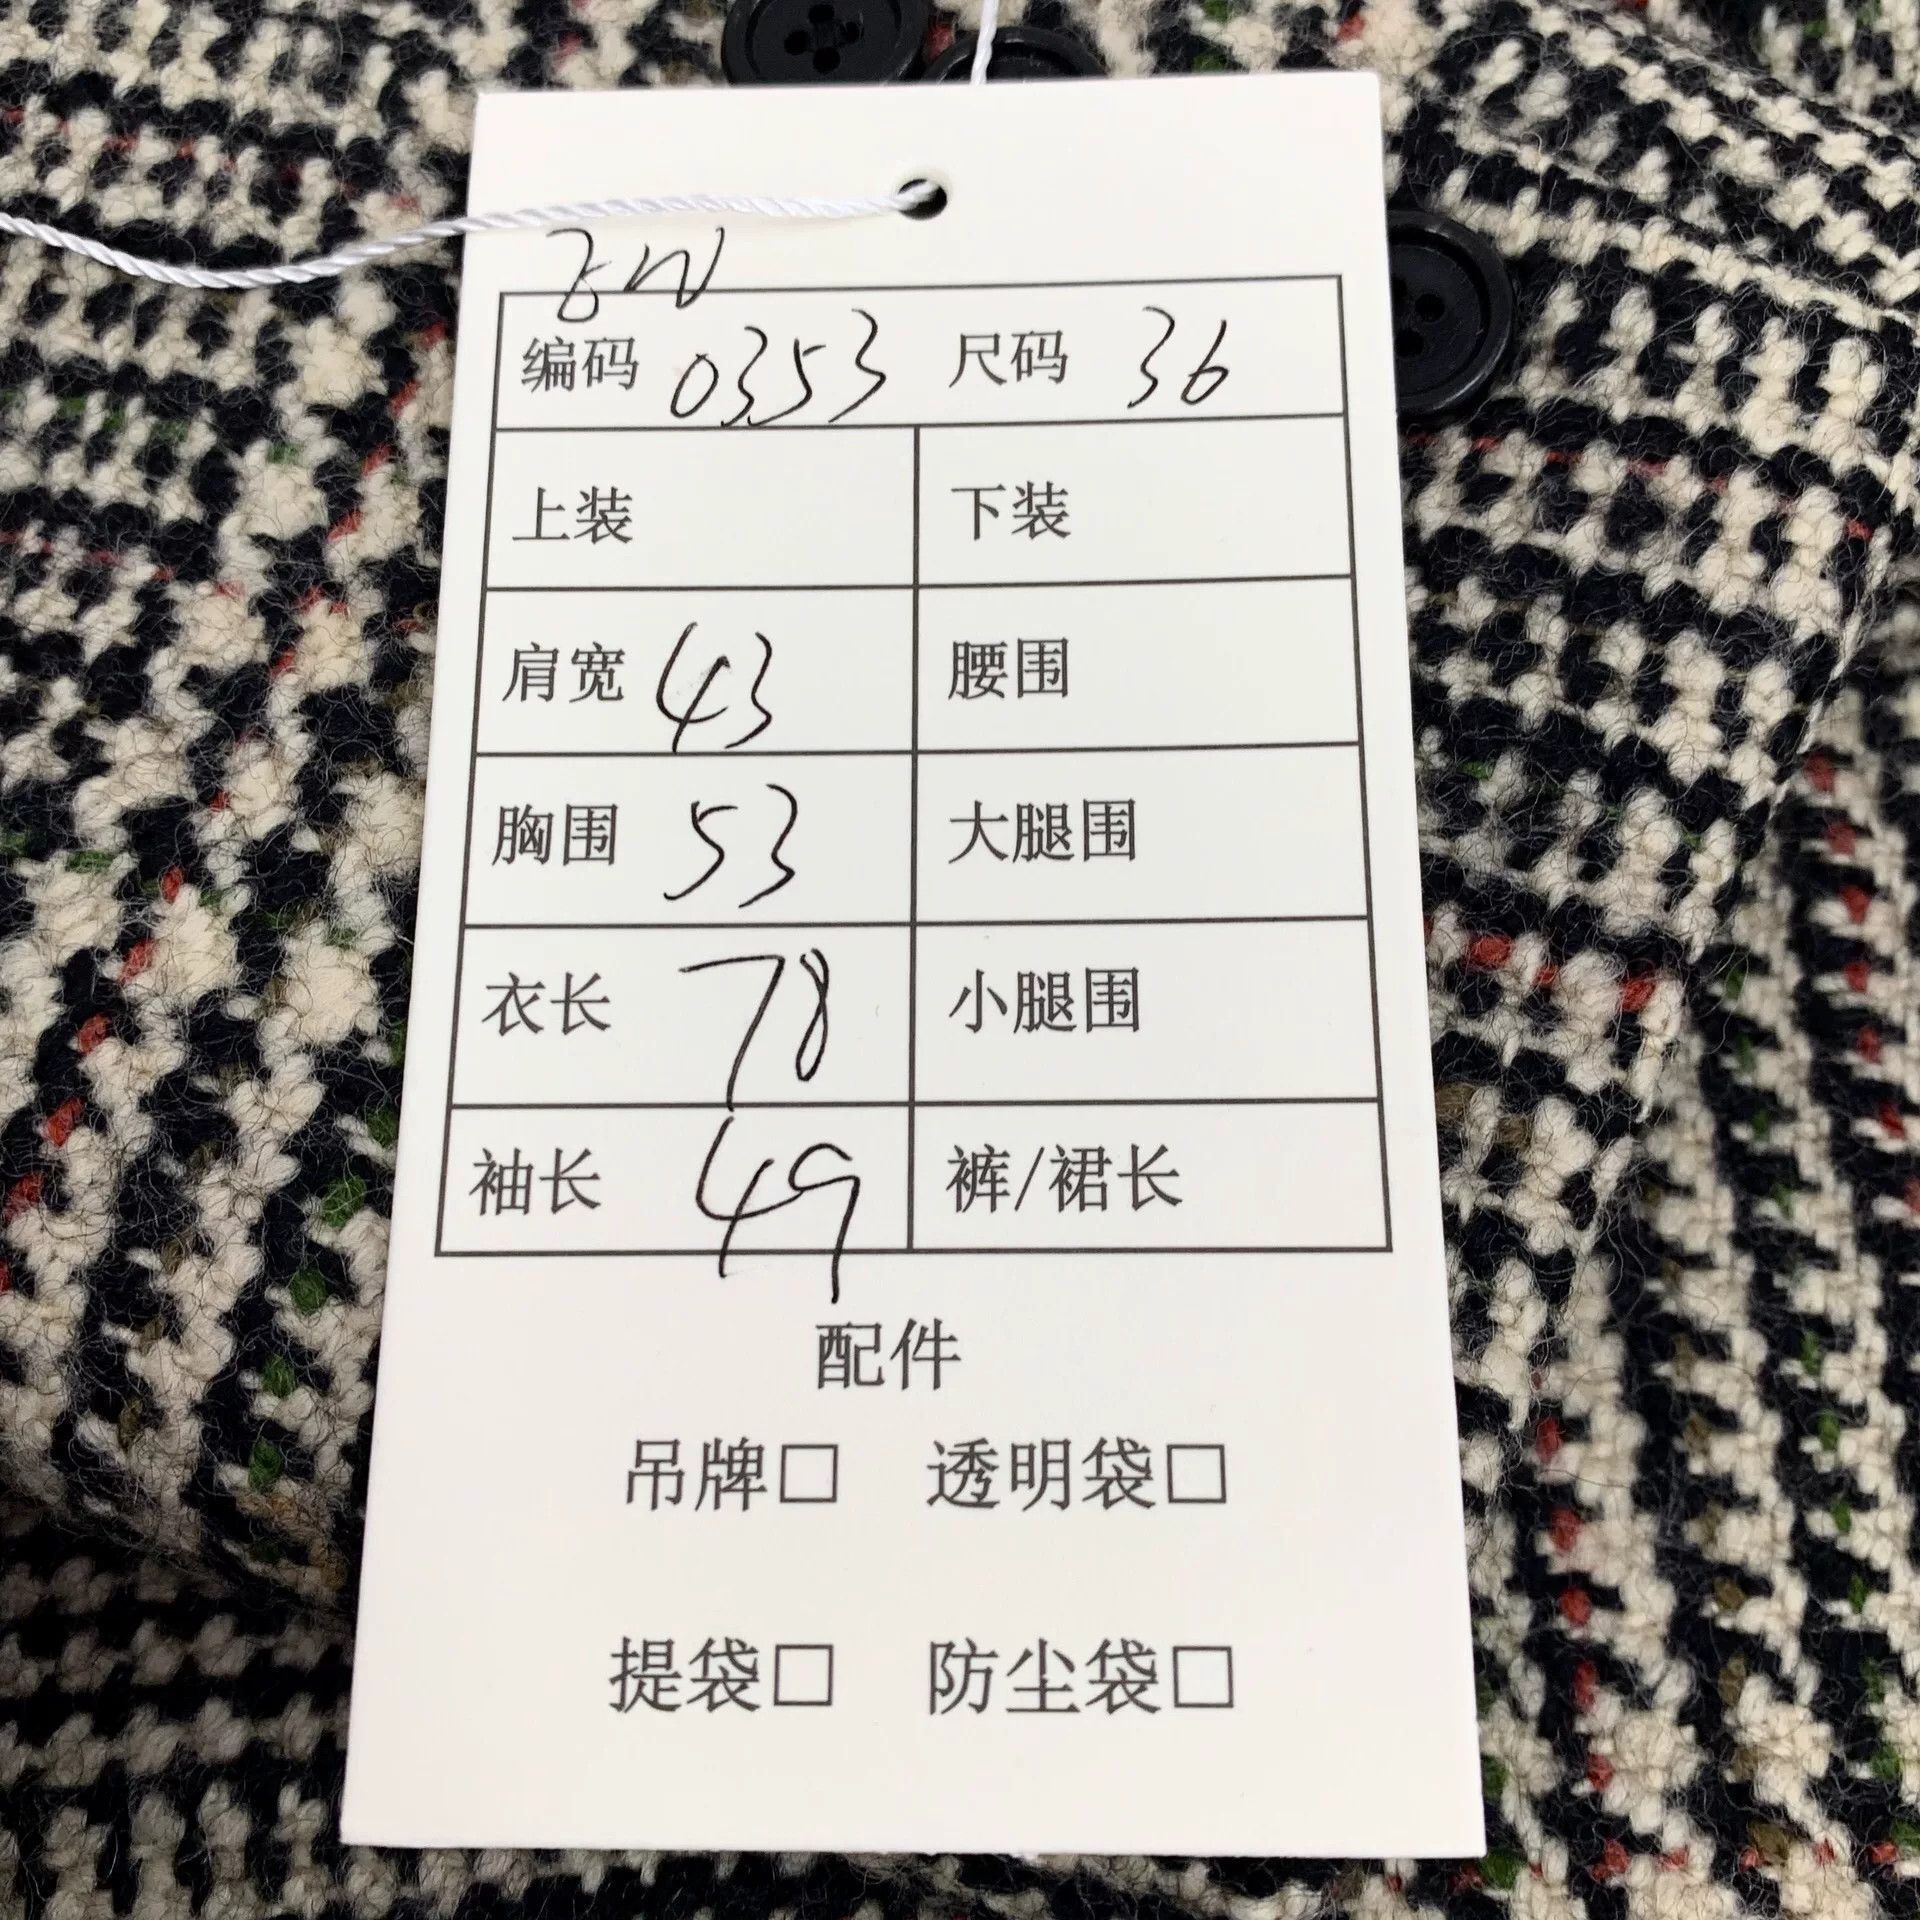 编码 0353 尺码 36
上装 下装
肩宽 43 腰围
胸围 53 大腿围
衣长 78 小腿围
袖长 49 裤/裙长
配件
吊牌□ 透明袋□
提袋□ 防尘袋□